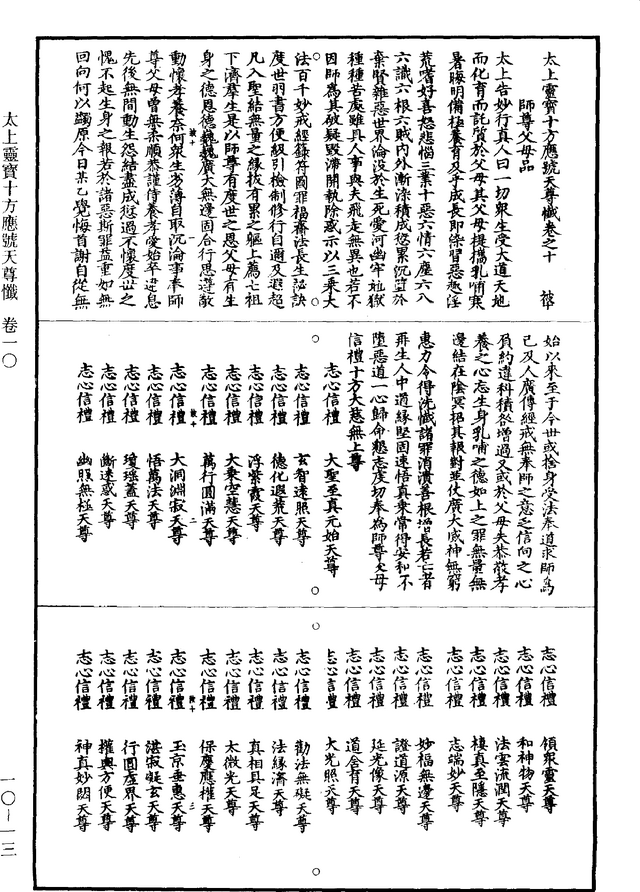 太上靈寶十方應號天尊懺卷之十 被
師尊父母品
太上告妙行真人曰一切衆生受大道天地
而化育而託質於父母其父母提携乳哺寒
暑晦明備極養育及乎成長即條習惡趣淫
荒嗜好喜怒悲惱三業十惡六情六塵六八
六識六根六賊內外漸染積成愆累沉並於
棄賢雜惡世界淪沒於生死愛河幽牢地獄
種種苦處雖具人事與夫飛走無異也若不
因師爲其破疑毀滯開執除惑示以三乘大
法百千妙戒經籙符圖罪福齋法長生祕訣
度世羽書方便級引檢制修行自邇及遐超
凡入聖結無量之緣拔有累之軀上薦七祖
下濟羣生是以師尊有度世之恩父母有生
身之德恩德巍巍廣大無邊固合行思遵敬
動懷孝養奈何衆生劣薄自取沉淪事奉師
尊父母曾無柔順恭謹侍養孝愛始卒違息
先後無間動生怨結盡成愆過不懷度世之
愧不起生身之報若於諸惡斯罪益重如無
回向何以蠲原今日某乙覺悔首謝自從無
始以來至于今世或捨身受法奉道求師爲
己及人廣傳經戒無奉師之意乏信向之心
負約違科積咎增過又或於父母失恭敬孝
養之心忘生身乳哺之德如上之罪無量無
邊結在陰冥招其報對並仗廣大威神無窮
惠力今得洗懺諸罪消潰善根增長若亡者
再生人中道緣堅固速悟真乘常得安和不
墮惡道一心歸命懇志虔切奉爲師尊父母
信禮十方大慈無上尊
志心信禮 大聖至真元始天尊
志心信禮 玄智遠照天尊
志心信禮 德化遐荒天尊
志心信禮 浮紫霞天尊
志心信禮 大乘空慧天尊
志心信禮 萬行圓滿天尊
被十 二
志心信禮 大洞淵寂天尊
志心信禮 悟萬法天尊
志心信禮 瓊瑤蓋天尊
志心信禮 斷迷惑天尊
志心信禮 幽照無極天尊
志心信禮 領衆靈天尊
志心信禮 和神物天尊
志心信禮 法雲流潤天尊
志心信禮 棲真至隱天尊
志心信禮 志端妙天尊
志心信禮 妙福無邊天尊
志心信禮 證道源天尊
志心信禮 延光像天尊
志心信禮 道含育天尊
志心信禮 大光照天尊
志心信禮 勸法無礙天尊
志心信禮 法緣濟天尊
志心信禮 真相具足天尊
志心信禮 太微光天尊
志心信禮 保慶應權天尊
被十 三
志心信禮 玉京垂惠天尊
志心信禮 湛寂凝玄天尊
志心信禮 行圓虛界天尊
志心信禮 權輿方便天尊
志心信禮 神真妙閟天尊
太上靈寶十方應號天尊懺 卷一〇
一〇－一三